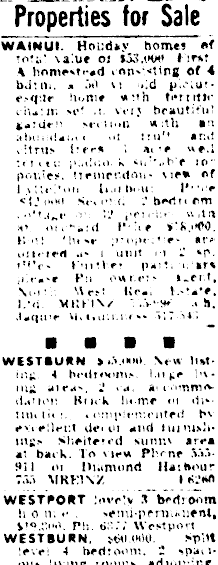 Properties for Sale
WAINUI. Holiday homes of
total value of $53,000. First
A homestead consisting of 4
bdrm, a 50 yr old pictur-
esque home with terrific
charm set in very beautiful
garden section with an
abundance of fruit and
citrus trees, acre well
fenced paddock suitable for
ponies, tremendous view of
Lyttelton Harbour. Price
Second, 2 bedroom
cottage on 32 perches with
an orchard Price
Both these properties are
offered as 1 unit or 2 sp.
titles. Further particulars
please Ph. owners agent,
North West Real Estate,
Ltd. MREINZ
Jaquie McGuinness 517-543
WESTBURN New list-
ing 4 bedrooms, large liv-
ing areas, 2 car accommo-
dation Brick home of dis-
tinction, complemented by
excellent decor and furnish-
ings Sheltered sunny area
at back. To view Phone 555-
911 or Diamond Harbour
755 MREINZ
WESTPORT lovely 3 bedroom
home, semi-permanent,
Ph. 6377 Westport
WESTBURN, $60,000. Split
level 4 bedroom, 2 spaci-
ous living rooms adjoining